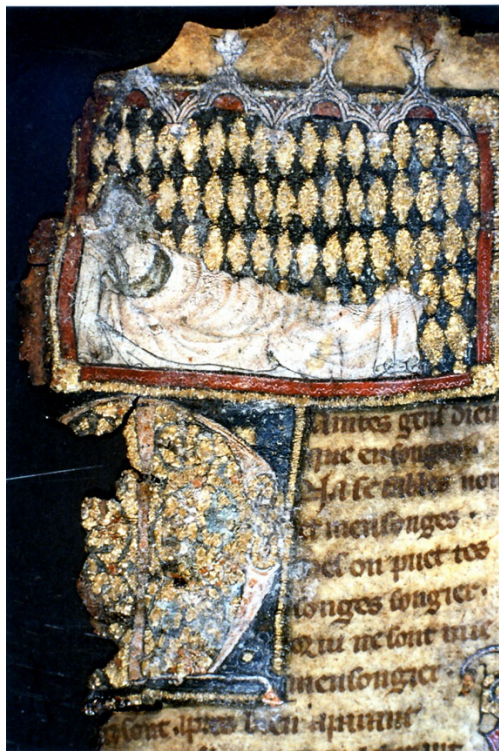 aintes gent dien
que en songes
Na se fables non
et mensonges ·
Mes on puet tes
songes songier·
Qui ne sont mie
mensongier·
sont apres bien aparant